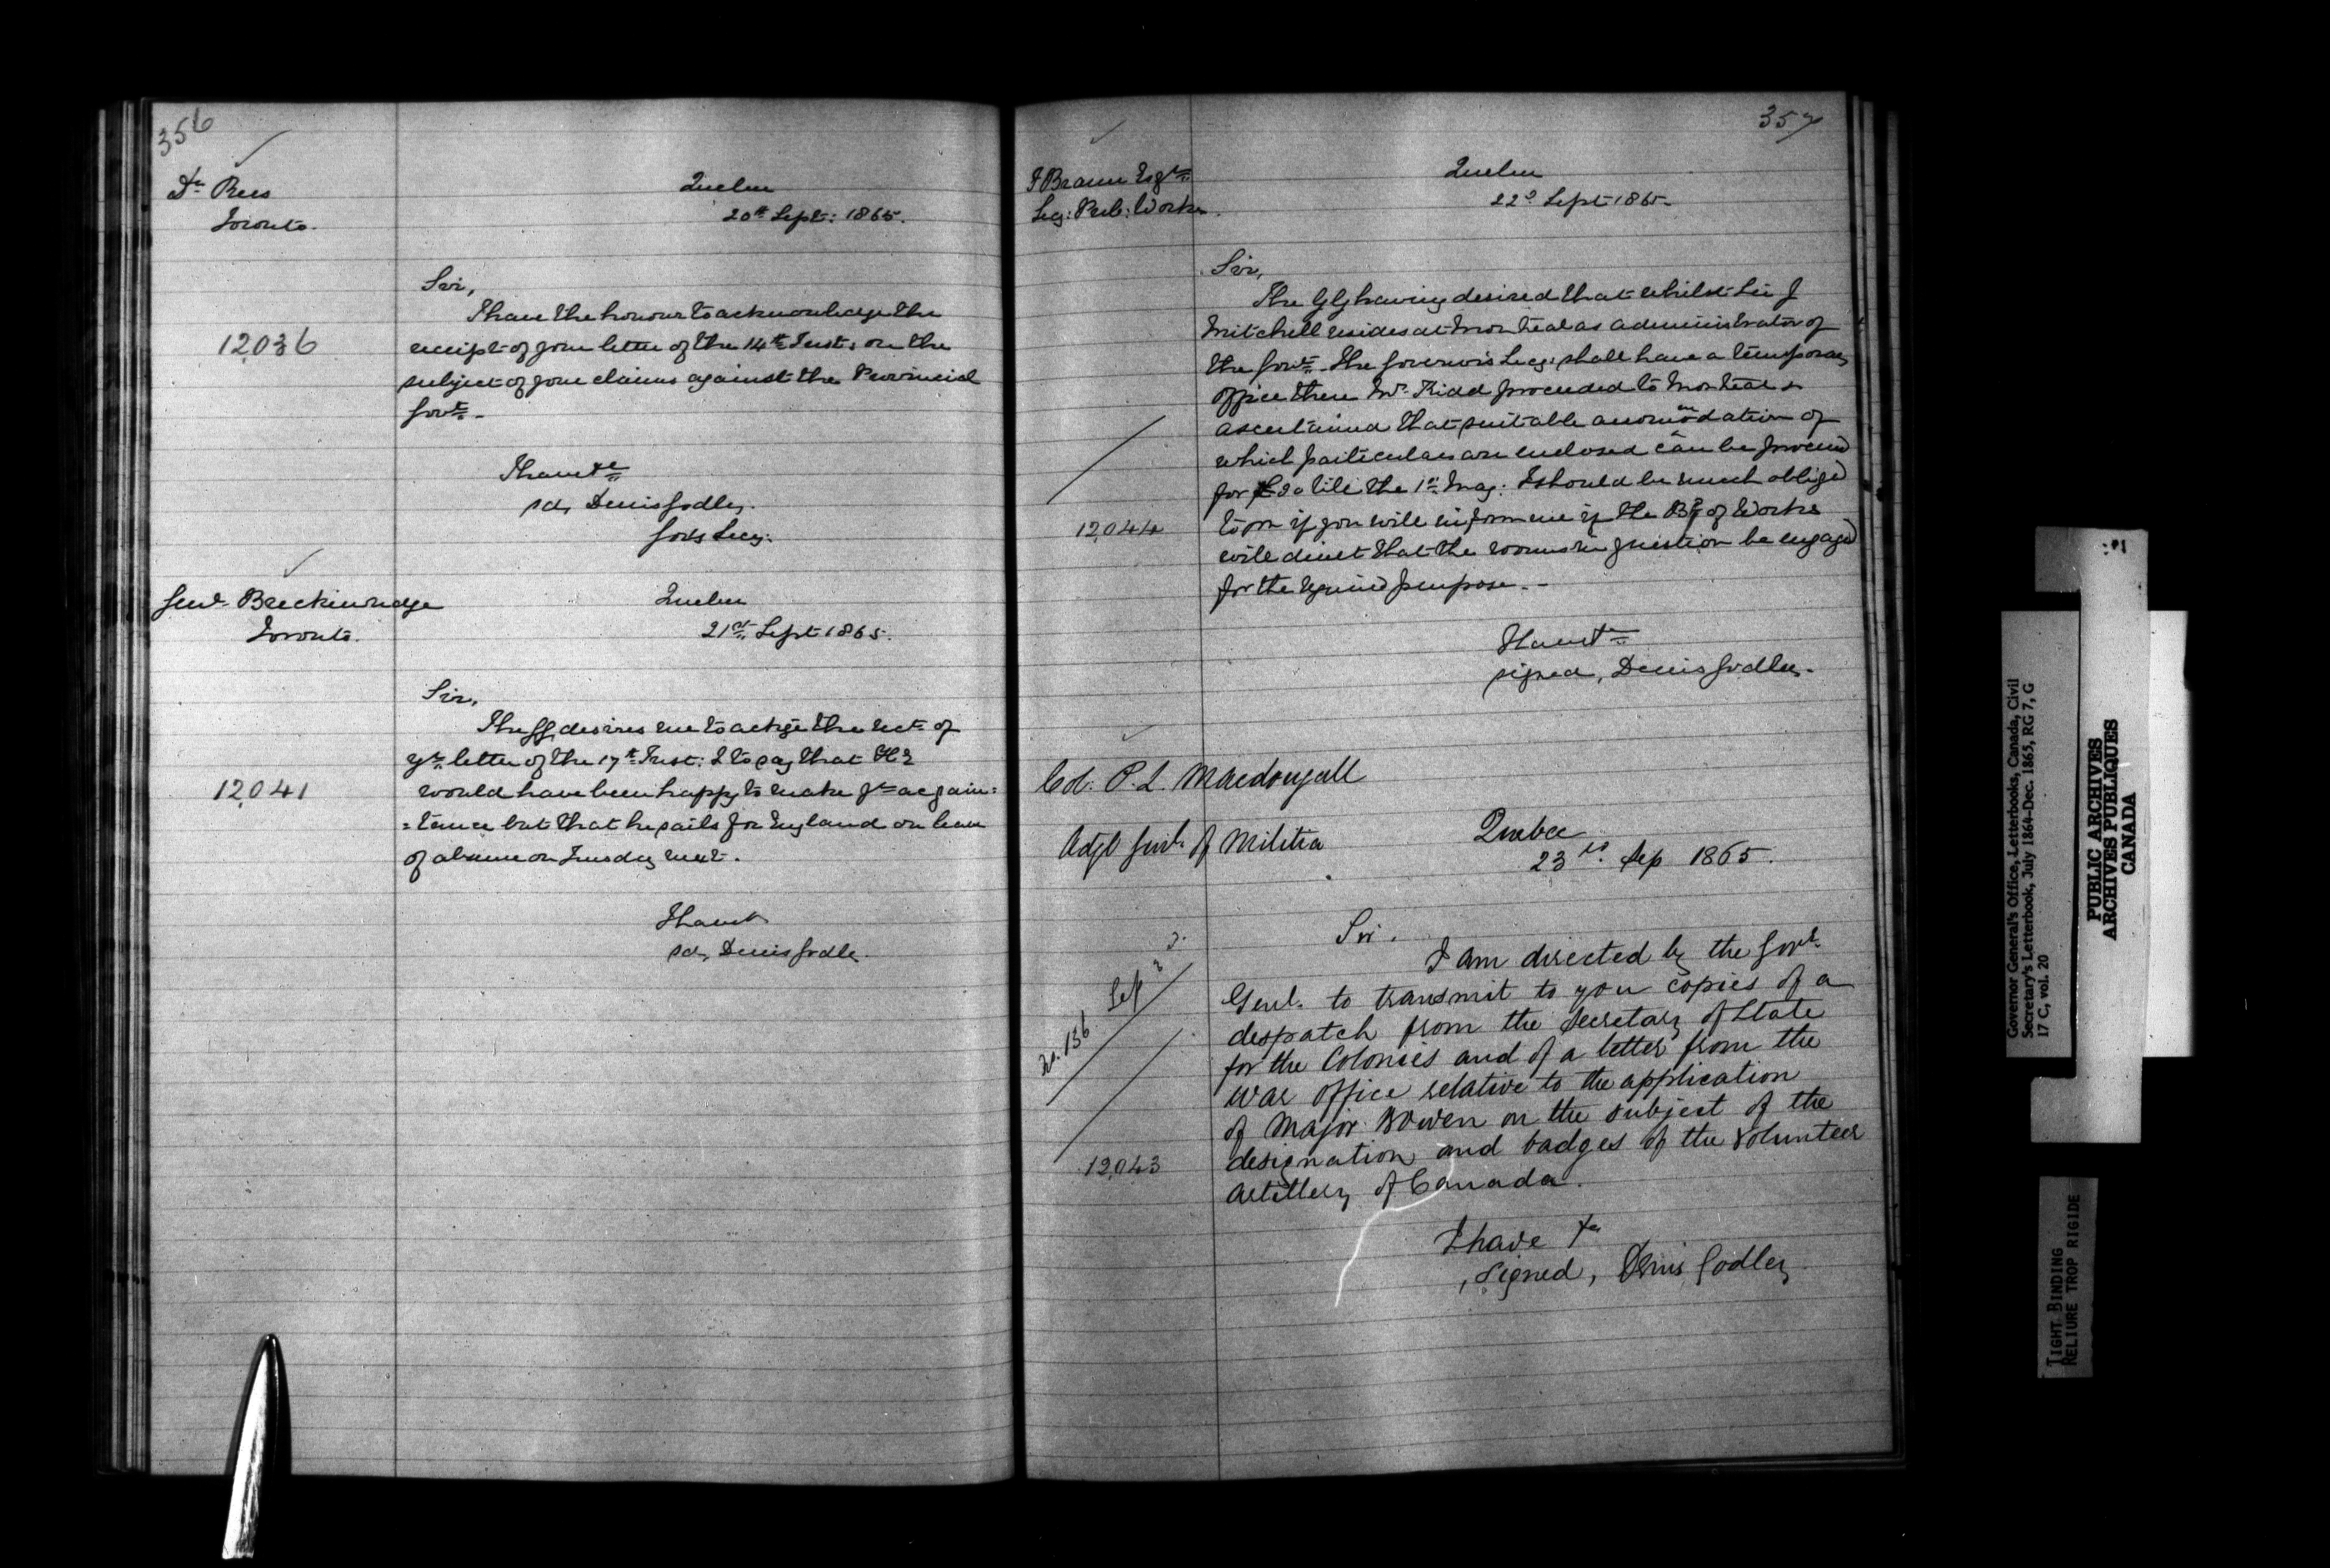 356
Dr. Rees
Toronto.
Quebec
20th Sept: 1865.
12,036
Sir,
I have the honour to acknowledge the
receipt of your letter of the 14th Inst: on the
subject of your claims against the Provincial
Govt.
I have &c
sd, Denis Godley.
Gov's Secy.
Genl. Breckinridge
Toronto.
Quebec
21st Sept 1865.
12,041
Sir,
The GG desires me to ackge the rect. of
yr. letter of the 17th Inst: & to say that HE
would have been happy to make yr. acquain=
=tance but that he sails for England on leave
of absence on Tuesday next.
I have &c
sd, Denis Godley.
357
F Braun Esqre.
Secy: Pub: Works.
Quebec
22d Sept 1865.
12,044
Sir,
The GG having desired that whilst Sir J
Mitchell resides at Montreal as administrator of
the Govt. the Governor's Secy: shall have a temporary
office there Mr. Kidd proceeded to Montreal &
ascertained that suitable accommodation of
which particulars are enclosed can be procured
for £20 till the 1st May: I should be much obliged
to you if you will inform me if the Bd of Works
will direct that the rooms in question be engaged
for the required purpose.
I have &c
signed, Denis Godley.
Col. P. L. Macdougall
Adjt Genl. of Militia
Quebec
23rd Sep 1865.
No. 136 Sep 2
12,043
Sir.
I am directed by the Govr.
Genl. to transmit to you copies of a
despatch from the Secretary of State
for the Colonies and of a letter from the
War Office relative to the application
of Major Bowen on the subject of the
designation and badges of the Volunteer
Artillery of Canada.
I have &c
Signed, Denis Godley
Governor General's Office, Letterbooks, Canada, Civil
Secretary's Letterbook, July 1864-Dec. 1865, RG 7, G
17 C, vol. 20
PUBLIC ARCHIVES
ARCHIVES PUBLIQUES
CANADA
TIGHT BINDING
RELIURE TROP RIGIDE